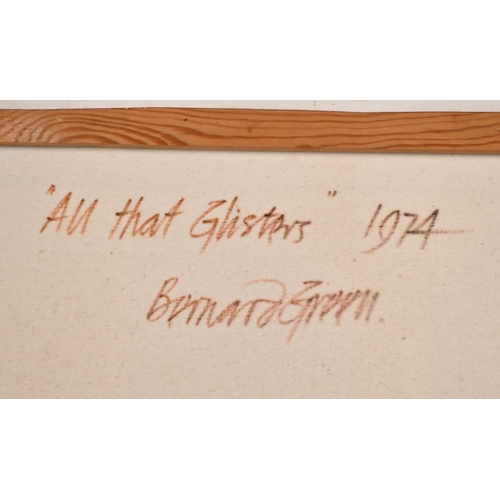 "All that Glisters" 1974
Bernard Green.